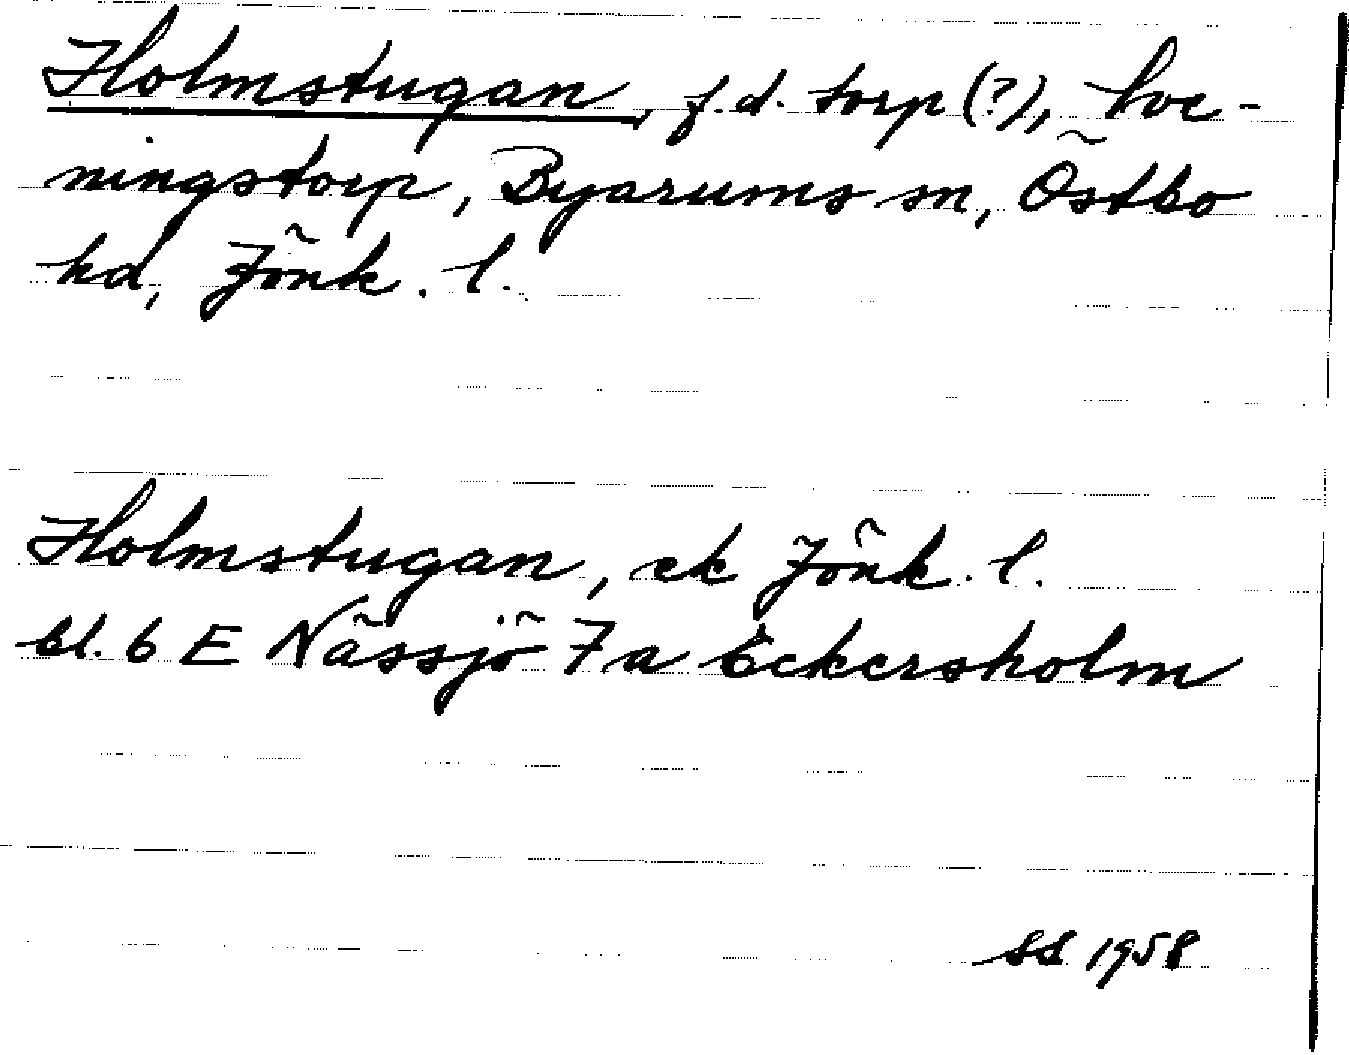 Holmstugan, f.d. torp (?), hoc-
ningstorp, Byarums sn, Östbo
hd, Jönk. l.
Holmstugan, ek Jönk. l.
bl. 6 E Nässjö 7 a Eckersholm
SS 1958